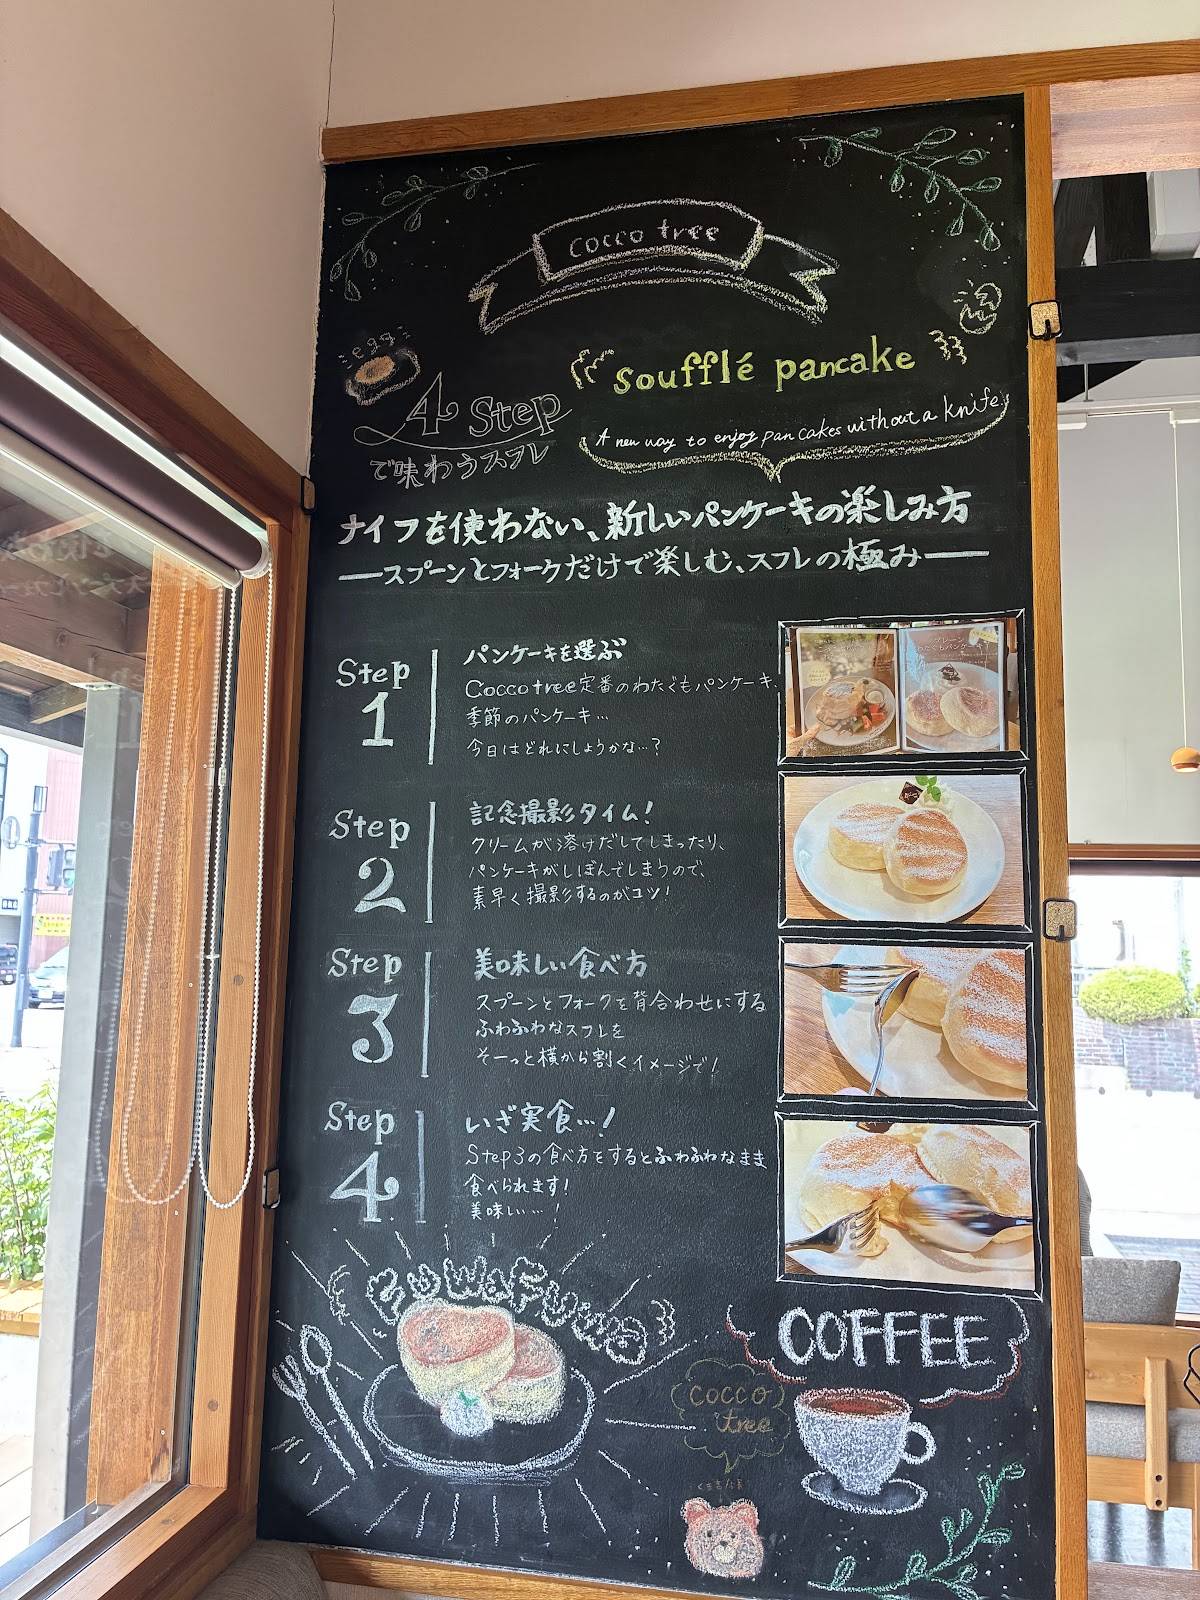 cocco tree
egg
4 Step
で味わうスフレ
soufflé pancake
A new way to enjoy pancakes without a knife.
ナイフを使わない、新しいパンケーキの楽しみ方
―スプーンとフォークだけで楽しむ、スフレの極み―
Step 1
パンケーキを選ぶ
Cocco tree定番のわたぐもパンケーキ、
季節のパンケーキ…
今日はどれにしようかな…?
Step 2
記念撮影タイム!
クリームが溶けだしてしまったり、
パンケーキがしぼんでしまうので、
素早く撮影するのがコツ!
Step 3
美味しい食べ方
スプーンとフォークを背合わせにする
ふわふわなスフレを
そーっと横から割くイメージで!
Step 4
いざ実食…!
Step3の食べ方をするとふわふわなまま
食べられます!
美味しい…!
FuwaFuwa
COFFEE
cocco
tree